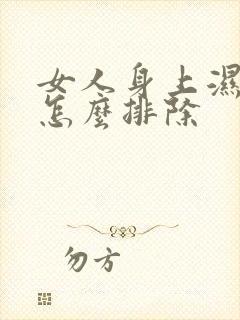 女人身上濕
怎麼排除
勿方